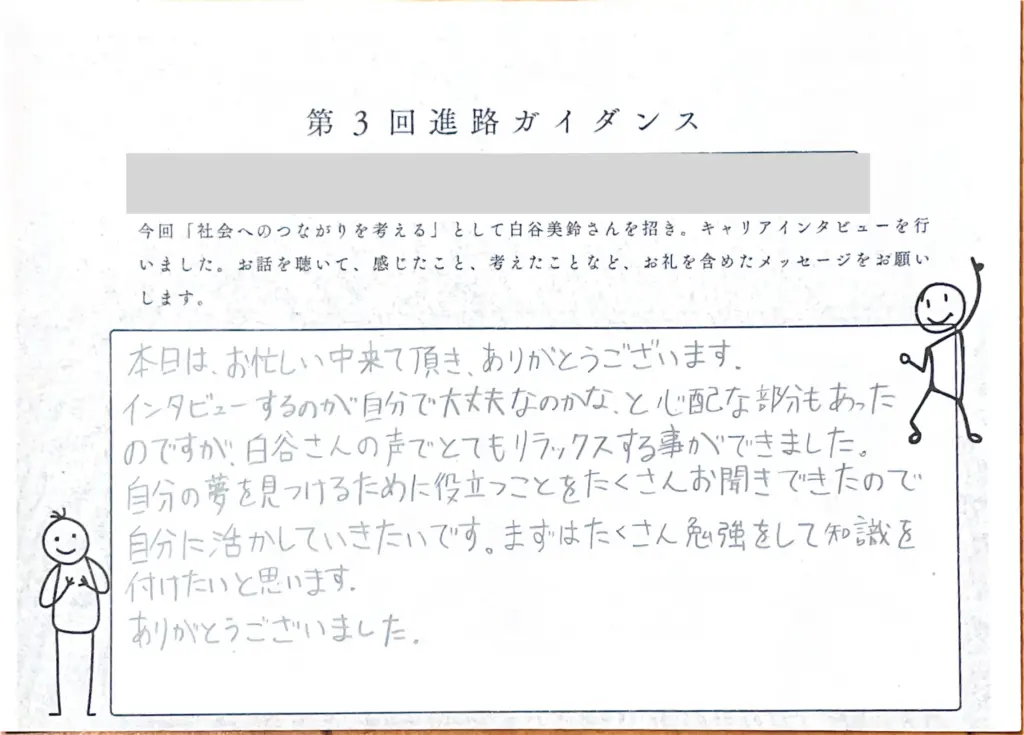 第3回進路ガイダンス
今回「社会へのつながりを考える」として白谷美鈴さんを招き。キャリアインタビューを行
いました。お話を聴いて、感じたこと、考えたことなど、お礼を含めたメッセージをお願い
します。
本日は、お忙しい中来て頂き、ありがとうございます.
インタビューするのが自分で大丈夫なのかな、と心配な部分もあった
のですが、白谷さんの声でとてもリラックスする事ができました。
自分の夢を見つけるために役立つことをたくさんお聞きできたので
自分に活かしていきたいです。まずはたくさん勉強をして知識を
付けたいと思います.
ありがとうございました.